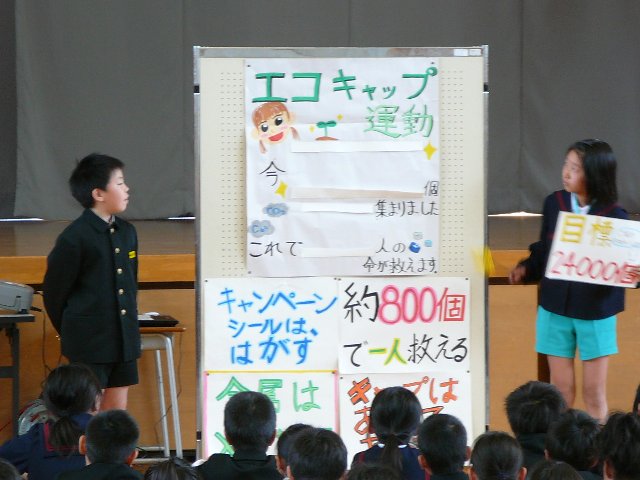 エコキャップ
運動
今
個
集まりました
これで
人の
命が救えます
キャンペーン
シールは、
はがす
約800個
で一人救える
金属は
キャップは
目標
24000個